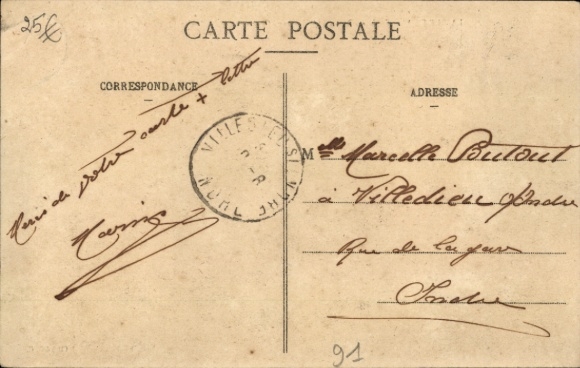 25€
CARTE POSTALE
CORRESPONDANCE
ADRESSE
Merci de votre carte + lettre
Mlle Marcelle Butout
à Villedieu s/Indre
Rue de la gare
Indre
91